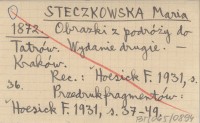 STECZKOWSKA Maria
1872. Obrazki z podróży do
Tatrów. Wydanie drugie. –
Kraków.
Rec.: Hoesick F. 1931, s.
36.
Przedruk fragmentów:
Hoesick F. 1931, s. 37-49.